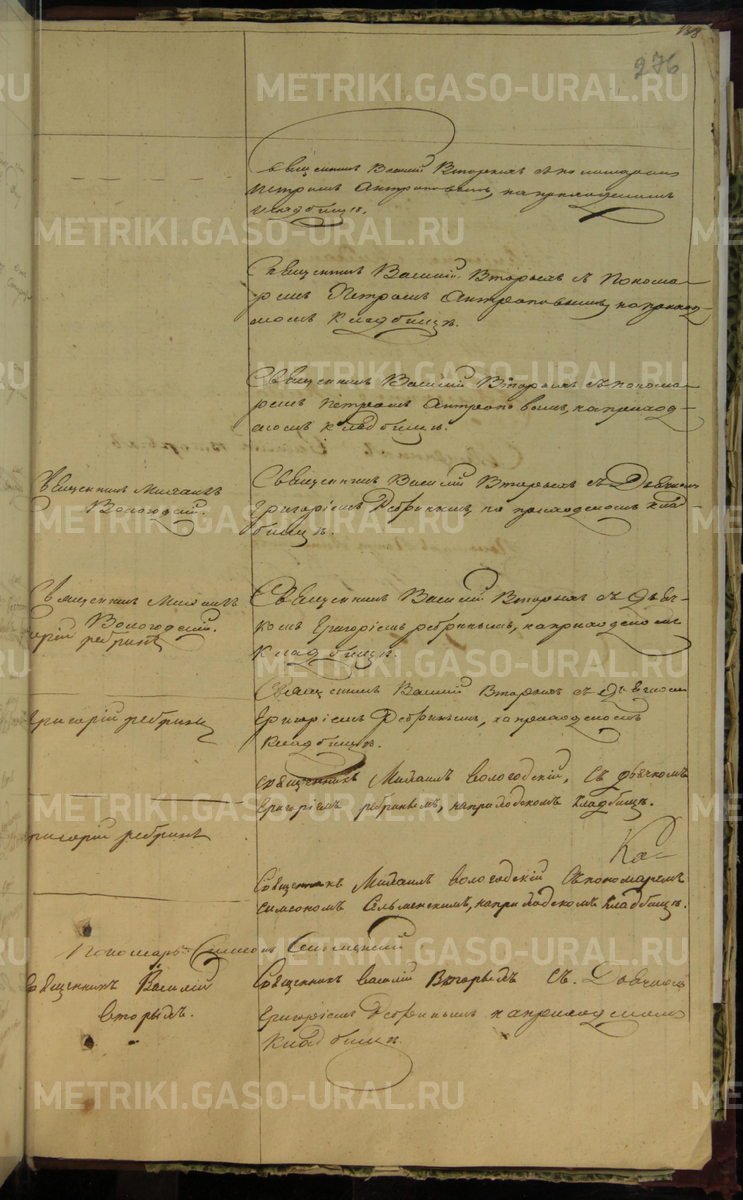 138
276
Священникъ Василий Вторыхъ съ пономаремъ
Петромъ Антроповымъ, на приходскомъ
кладбищѣ.
Священникъ Василий Вторыхъ съ Понома-
ремъ Петромъ Антроповымъ, на приход-
скомъ кладбищѣ.
Священникъ Василий Вторыхъ съ понома-
ремъ Петромъ Антроповымъ, на приход-
скомъ кладбищѣ.
Священникъ Михаилъ
Вологодский.
Священникъ Василий Вторыхъ съ Дьячкомъ
Григоріемъ Ребринымъ, на приходскомъ клад-
бищѣ.
Священникъ Михаилъ
Вологодский.
Григорій Ребринъ
Священникъ Василий Вторыхъ съ Дьяч-
комъ Григоріемъ Ребринымъ, на приходскомъ
кладбищѣ.
Григорій Ребринъ
Священникъ Василий Вторыхъ съ Дьячкомъ
Григоріемъ Ребринымъ, на приходскомъ
кладбищѣ.
Григорій Ребринъ
Священникъ Михаилъ Вологодскій, съ дьячкомъ
Григоріемъ Ребринымъ, на приходскомъ кладбищѣ.
Ка-
Священникъ Михаилъ Вологодскій съ пономаремъ
Симеономъ на приходскомъ кладбищѣ.
Пономарь Симеонъ
Священникъ Василий
Вторыхъ.
Священникъ Василий Вторыхъ съ Дьячкомъ
Григоріемъ Ребринымъ на приходскомъ
кладбищѣ.
METRIKI.GASO-URAL.RU